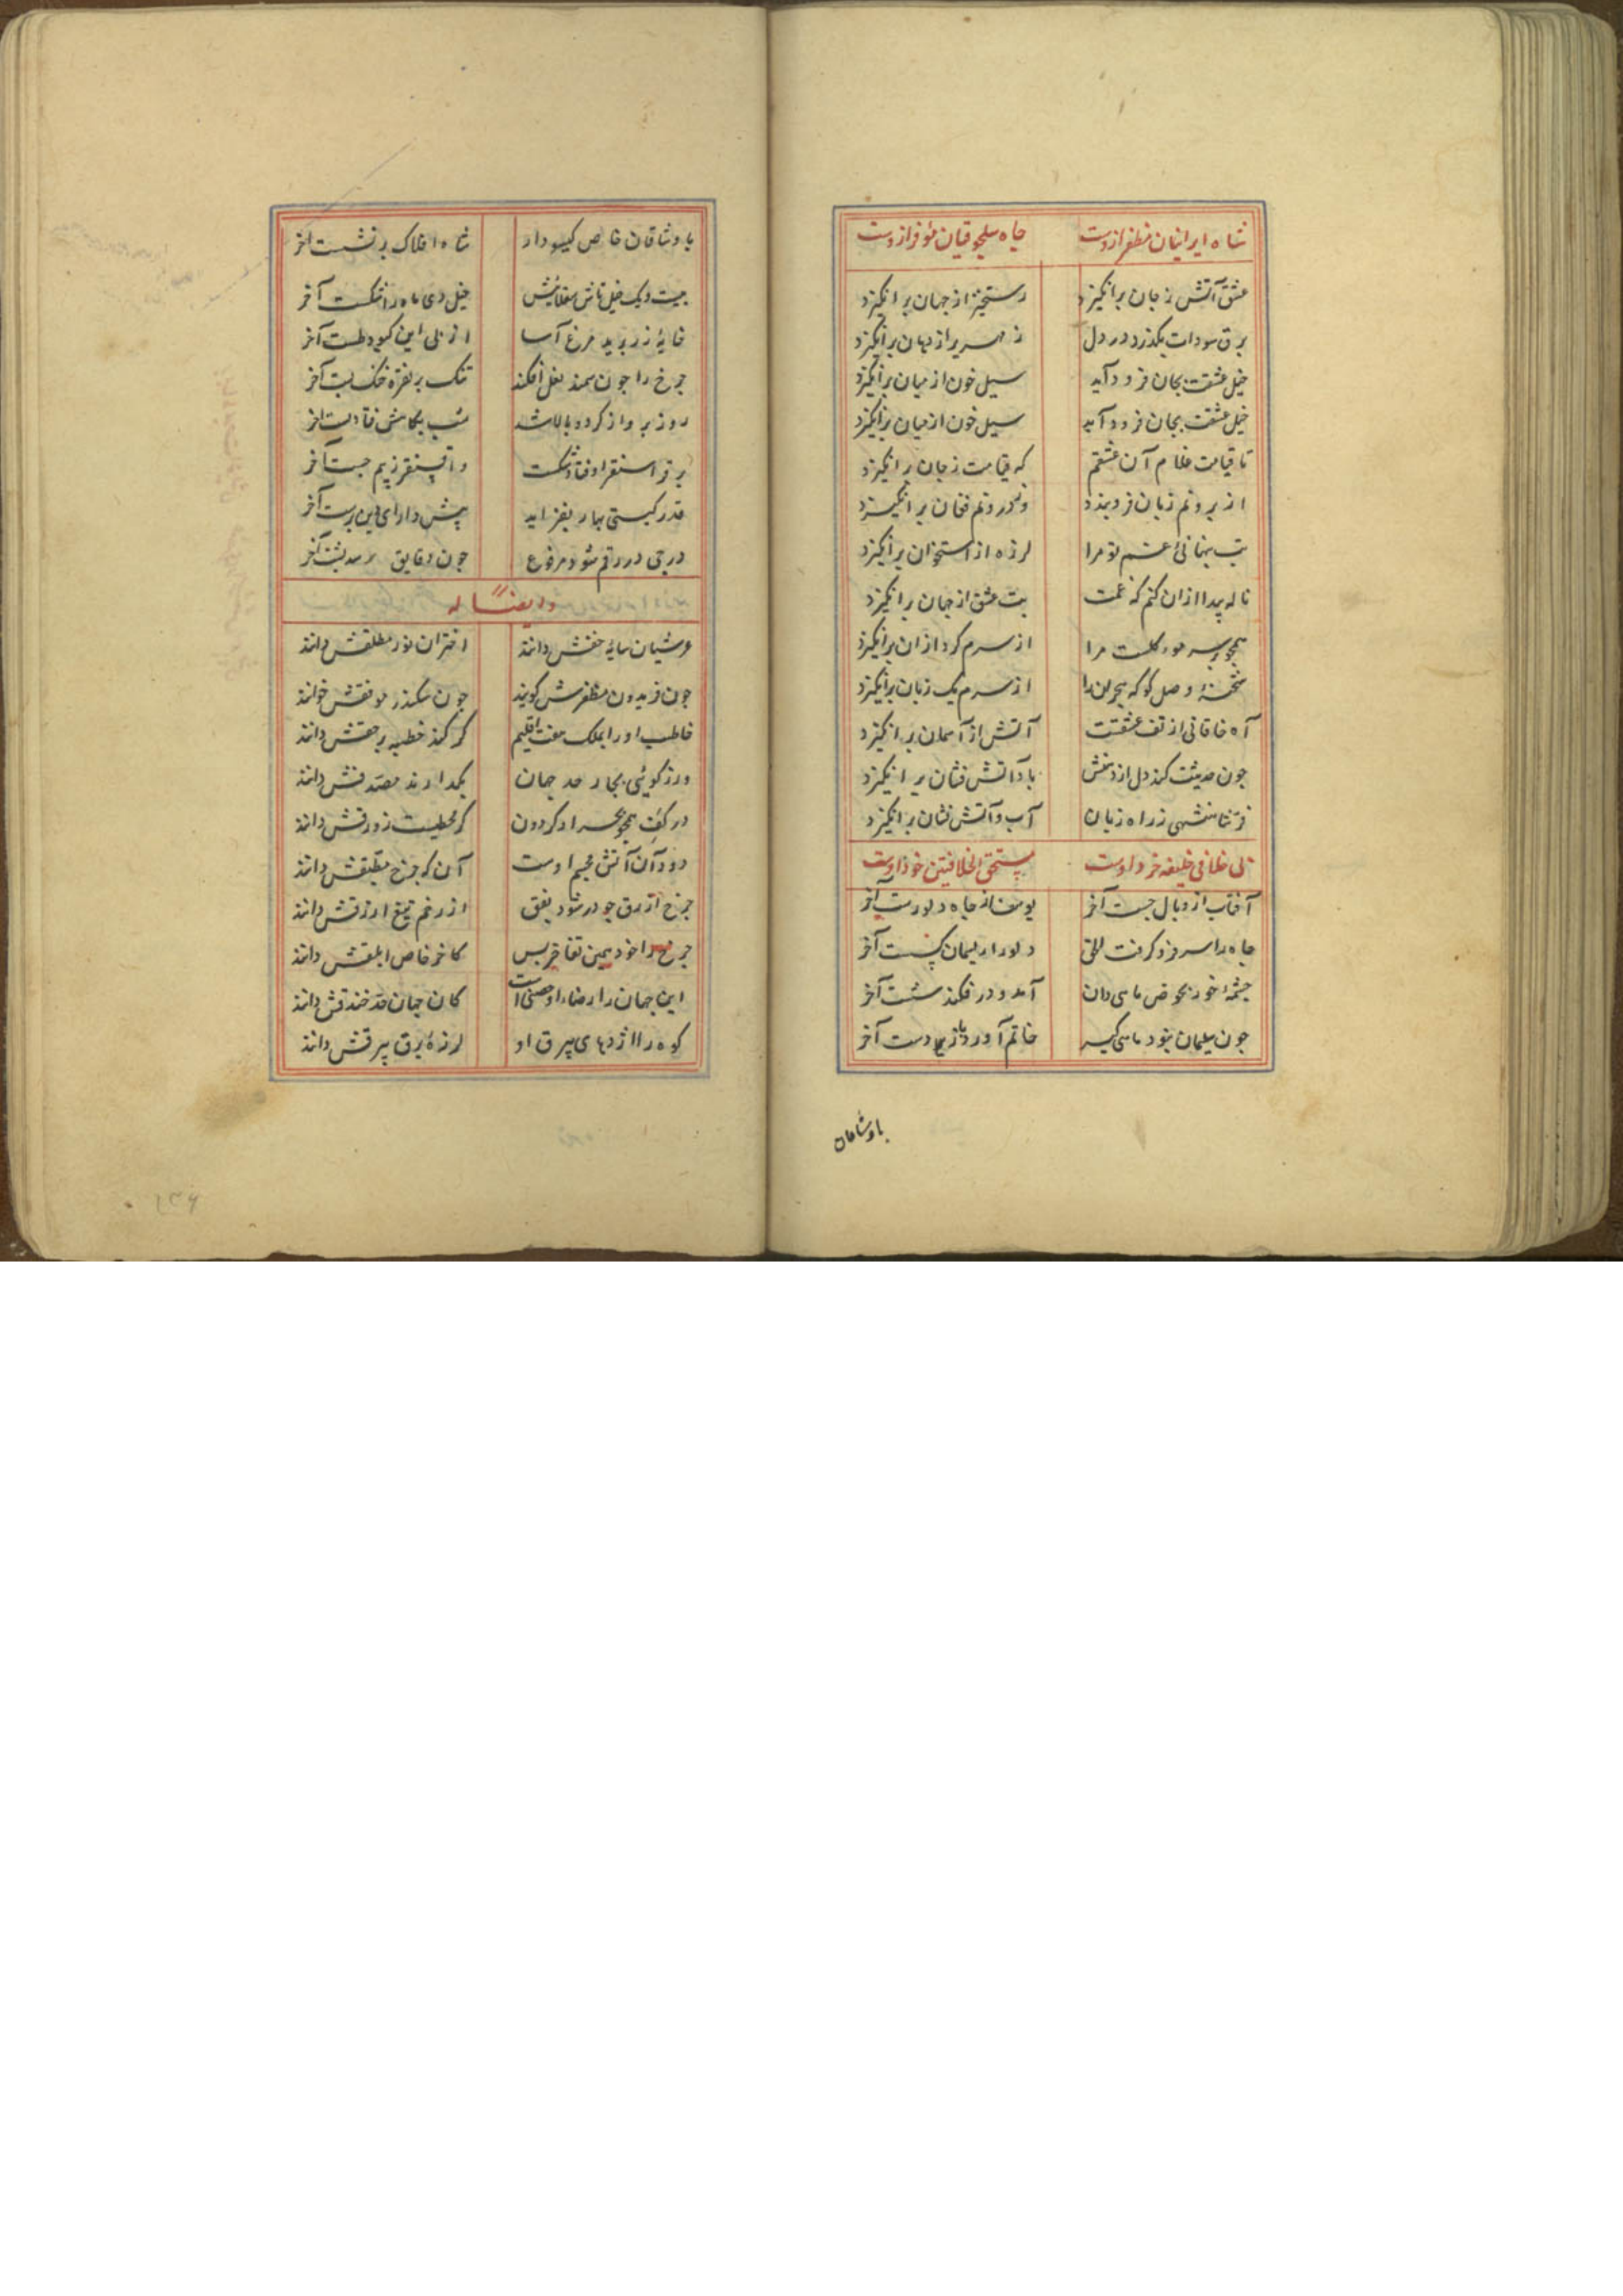 شاه ایرانیان مظفر ازوست جاه سلجوقیان موفر ازوست
عشق آتش ز جان برانگیزد رستخیز از جهان برانگیزد
برق سودات بگذرد در دل زمهریر از دهان برانگیزد
خیل عشقت بجان فرود آید سیل خون از میان برانگیزد
خیل عشقت بجان فرود آید سیل خون از میان برانگیزد
تا قیامت غلام آن عشقم که قیامت ز جان برانگیزد
از برونم زبان فروبندد وز درونم فغان برانگیزد
تب پنهانیٔ غم تو مرا لرزه از استخوان برانگیزد
ناله پیدا ازان کنم که غمت تب عشق از جهان برانگیزد
همچو سر مرا از سرم کرد ازان برانگیزد
شحنهٔ وصل کو که هجران را از سرم یک زبان برانگیزد
آه خاقانی از تف عشقت آتش از آسمان برانگیزد
جون حدیثت کند دل از دهنش باد آتش فشان برانگیزد
فر شاهنشهی ز راه زبان آب و آتش نشان برانگیزد
لی خلافی خلیفه خرد اوست مستحق الخلافتین خود اوست
آفتاب از وبال جست آخر یوسف از جاه و دلو رست آخر
جاه را سر فرو کرفت الحق دلو را ریسمان کسست آخر
جشمهٔ خور بحوض ماهی دان آمد و در فکند شست آخر
جون سلیمان نبود ماهی کیر خاتم آورد باز بدست آخر
باوشاقان
باوشاقان خاص کیسودار شاه افلاک برنشست آخر
بیست ویک خیل تاش سقلابیش خیل دی ماه را شکست آخر
خایهٔ زر برید مرغ آسا از پی این کبود طست آخر
جرخ را جون سمند نعل افکند تنک بر نقره خنک بست آخر
روز پرواز کرد و بالا شد شب بکامش فتاد پست آخر
بر قراسنقر اوفتاد شکست واقسنقر ز بیم جست آخر
قدر کیتی بهار بفزاید پیش دارای دین پرست آخر
درجی در رقم شود مرفوع جون دقایق رسد بشست آخر
وایضاً له
عرشیان سایهٔ حقش دانند اختران نور مطلقش دانند
جون فریدون مظفرش کویند جون سکندر موفقش خوانند
خاطب او را بملک هفت اقلیم کر کند خطبه بر حقش دانند
ور ز کویی بجار حد جهان بکدارند مصدقش دانند
در کف همجو بحر او کردون کر محیطست زورقش دانند
دود آن آتش مجسم اوست آن که جرخ مطبقش دانند
جرخ ازرق جو در شود بفق از رخم تیغ ازرقش دانند
جرخ را خود همین تفاخر بس کاخر خاص ابلقش دانند
این جهان را رضاء او حصنی است کان جهان حد خندقش دانند
کوه را اژدهای بیرق او لرزهٔ برق بیرقش دانند